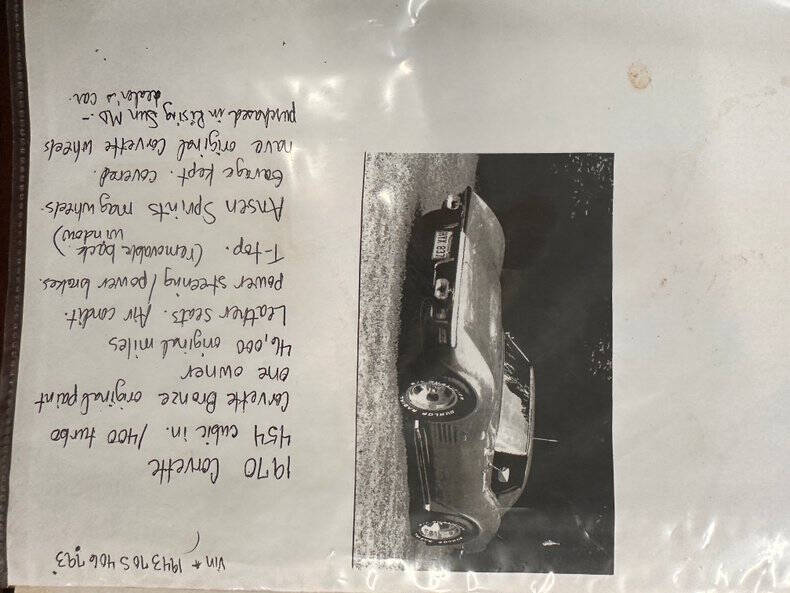 Vin # 194370S406793
1970 Corvette
454 cubic in. /400 turbo
Corvette Bronze original paint
one owner
46,000 original miles
Leather seats. Air condit.
power steering/power brakes.
T-top. (removable back
window)
Ansen Sprints mag wheels.
Garage kept. covered.
have original Corvette wheels
purchased in Rising Sun MD. -
dealer's car.
DUNLOP